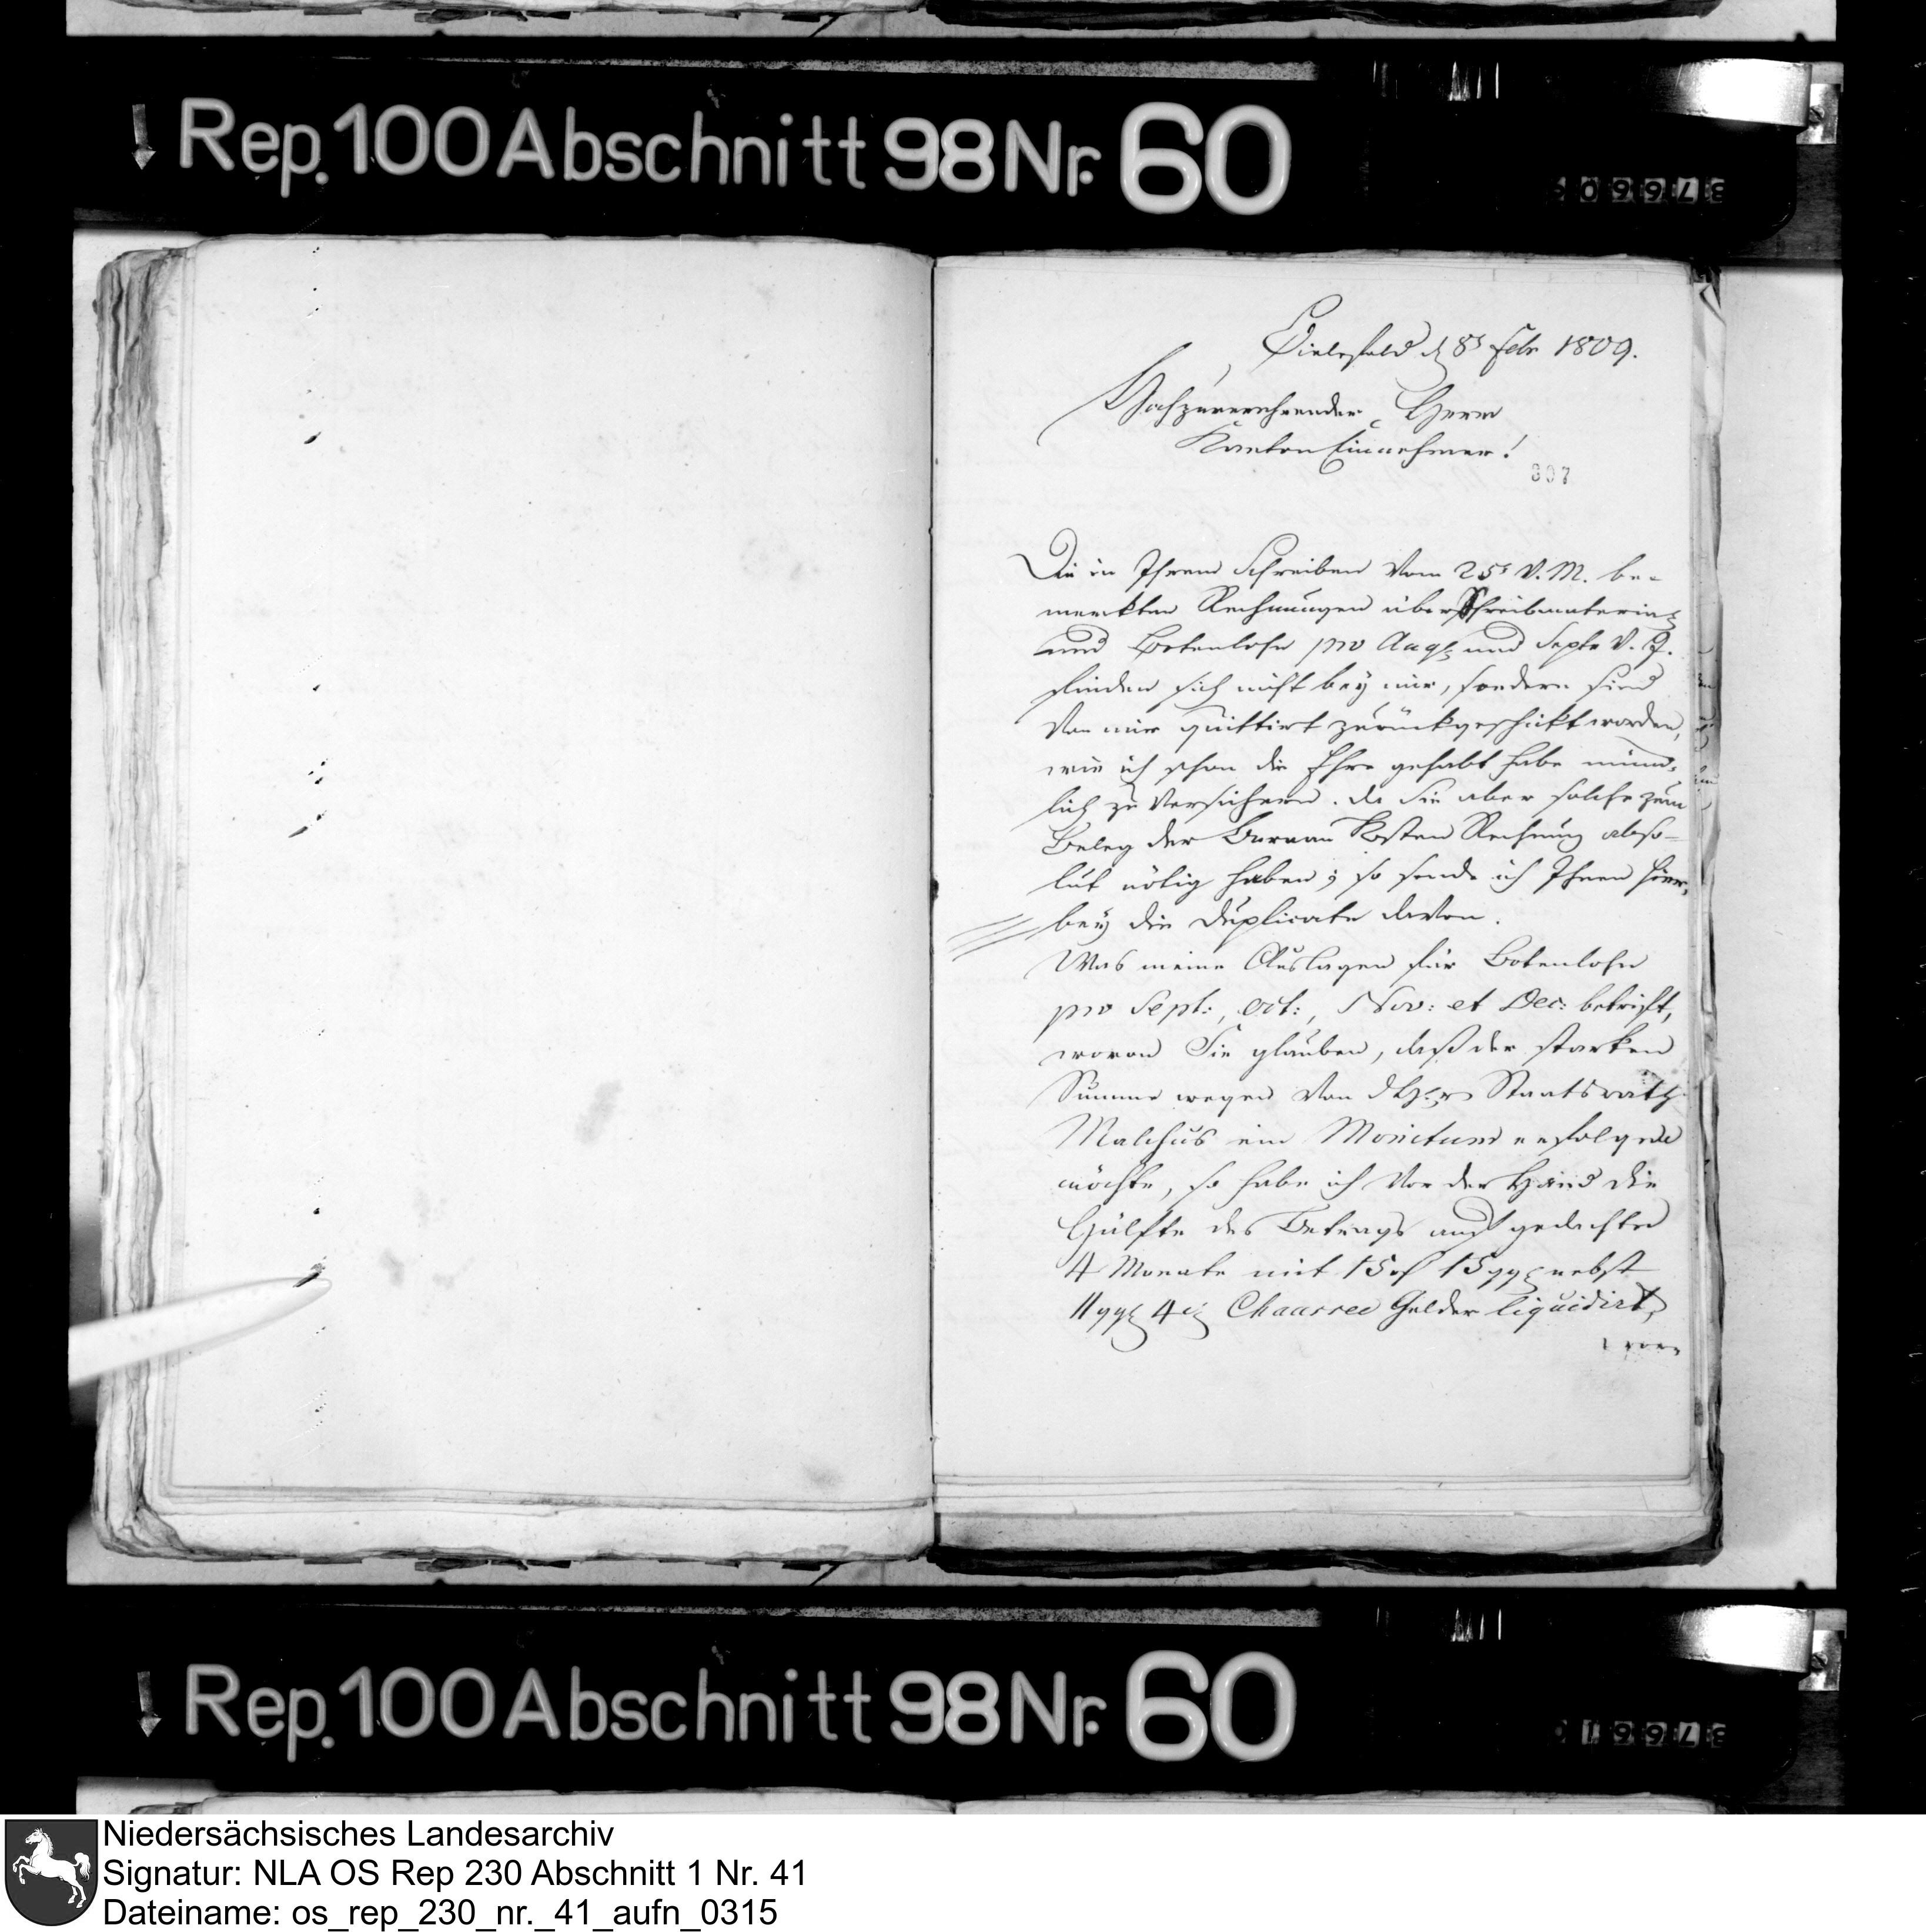 Rep. 100 Abschnitt 98 Nr. 60
37660
Bielefeld d 8t Febr 1809.
Hochzuverehrender Herr
Kanton Einnehmer!
307
Die in Ihrem Schreiben vom 25t v. M. be-
merkten Rechnungen über Schreibmaterial
und Botenlohn pro Aug und Septr v. J.
finden sich nicht bey mir, sondern sind
von mir quittirt zurückgeschickt worden,
wie ich schon die Ehre gehabt habe münd-
lich zu versichern. Da Sie aber solche zum
Beleg der Bureau Kosten Rechnung abso-
lut nötig haben; so sende ich Ihnen hier-
bey die Duplicate davon.
Was meine Auslagen für Botenlohn
pro Sept:, Oct:, Nov: et Dec: betrift,
wovon Sie glauben, daß der starken
Summe wegen von Staatsrath
Malchus ein Monitum erfolgen
möchte, so habe ich vor der Hand die
Hälfte des Betrags auf gedachte
4 Monate mit 15 15 ggl nebst
11 ggl 4 Chaussee Gelder liquidirt,
Rep. 100 Abschnitt 98 Nr. 60
37661
Niedersächsisches Landesarchiv
Signatur: NLA OS Rep 230 Abschnitt 1 Nr. 41
Dateiname: os_rep_230_nr._41_aufn_0315